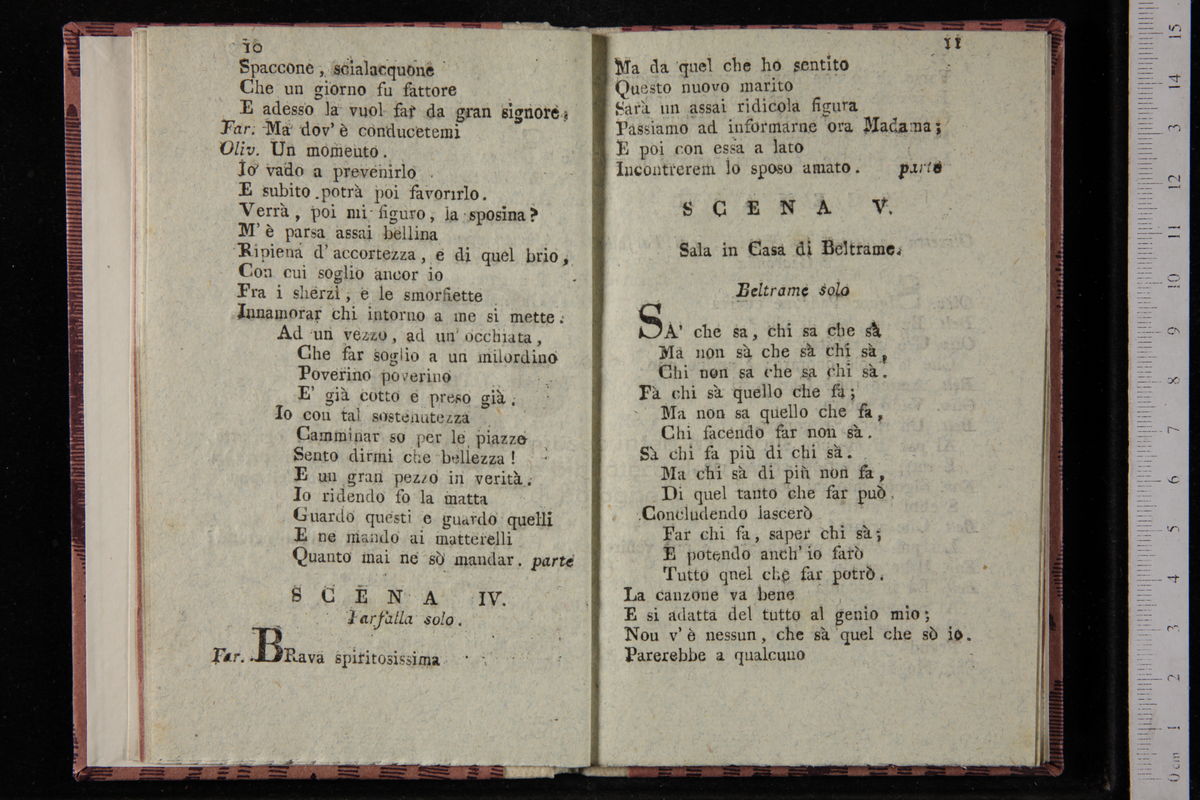 10
Spaccone, scialacquone
Che un giorno fu fattore
E adesso la vuol far da gran signore;
Far. Ma dov' è conducetemi
Oliv. Un momento.
Io vado a prevenirlo
E subito potrà poi favorirlo.
Verrà, poi mi figuro, la sposina?
M' è parsa assai bellina
Ripiena d' accortezza, e di quel brio,
Con cui soglio ancor io
Fra i sherzi, e le smorfiette
Innamorar chi intorno a me si mette.
Ad un vezzo, ad un' occhiata,
Che far soglio a un milordino
Poverino poverino
E' già cotto e preso già.
Io con tal sostenutezza
Camminar so per le piazze
Sento dirmi che bellezza!
E un gran pezzo in verità.
Io ridendo fo la matta
Guardo questi e guardo quelli
E ne mando ai matterelli
Quanto mai ne sò mandar. parte
SCENA IV.
Farfalla solo.
Far. BRava spiritosissima
11
Ma da quel che ho sentito
Questo nuovo marito
Sarà un assai ridicola figura
Passiamo ad informarne ora Madama;
E poi con essa a lato
Incontrerem lo sposo amato. parte
SCENA V.
Sala in Casa di Beltrame.
Beltrame solo
SA' che sa, chi sa che sà
Ma non sà che sà chi sà,
Chi non sa che sa chi sà.
Fà chi sà quello che fà;
Ma non sa quello che fa,
Chi facendo far non sà.
Sà chi fa più di chi sà.
Ma chi sà di più non fa,
Di quel tanto che far può.
Concludendo lascerò
Far chi fa, saper chi sà;
E potendo anch' io farò
Tutto quel che far potrò.
La canzone va bene
E si adatta del tutto al genio mio;
Nou v' è nessun, che sà quel che sò io.
Parerebbe a qualcuno